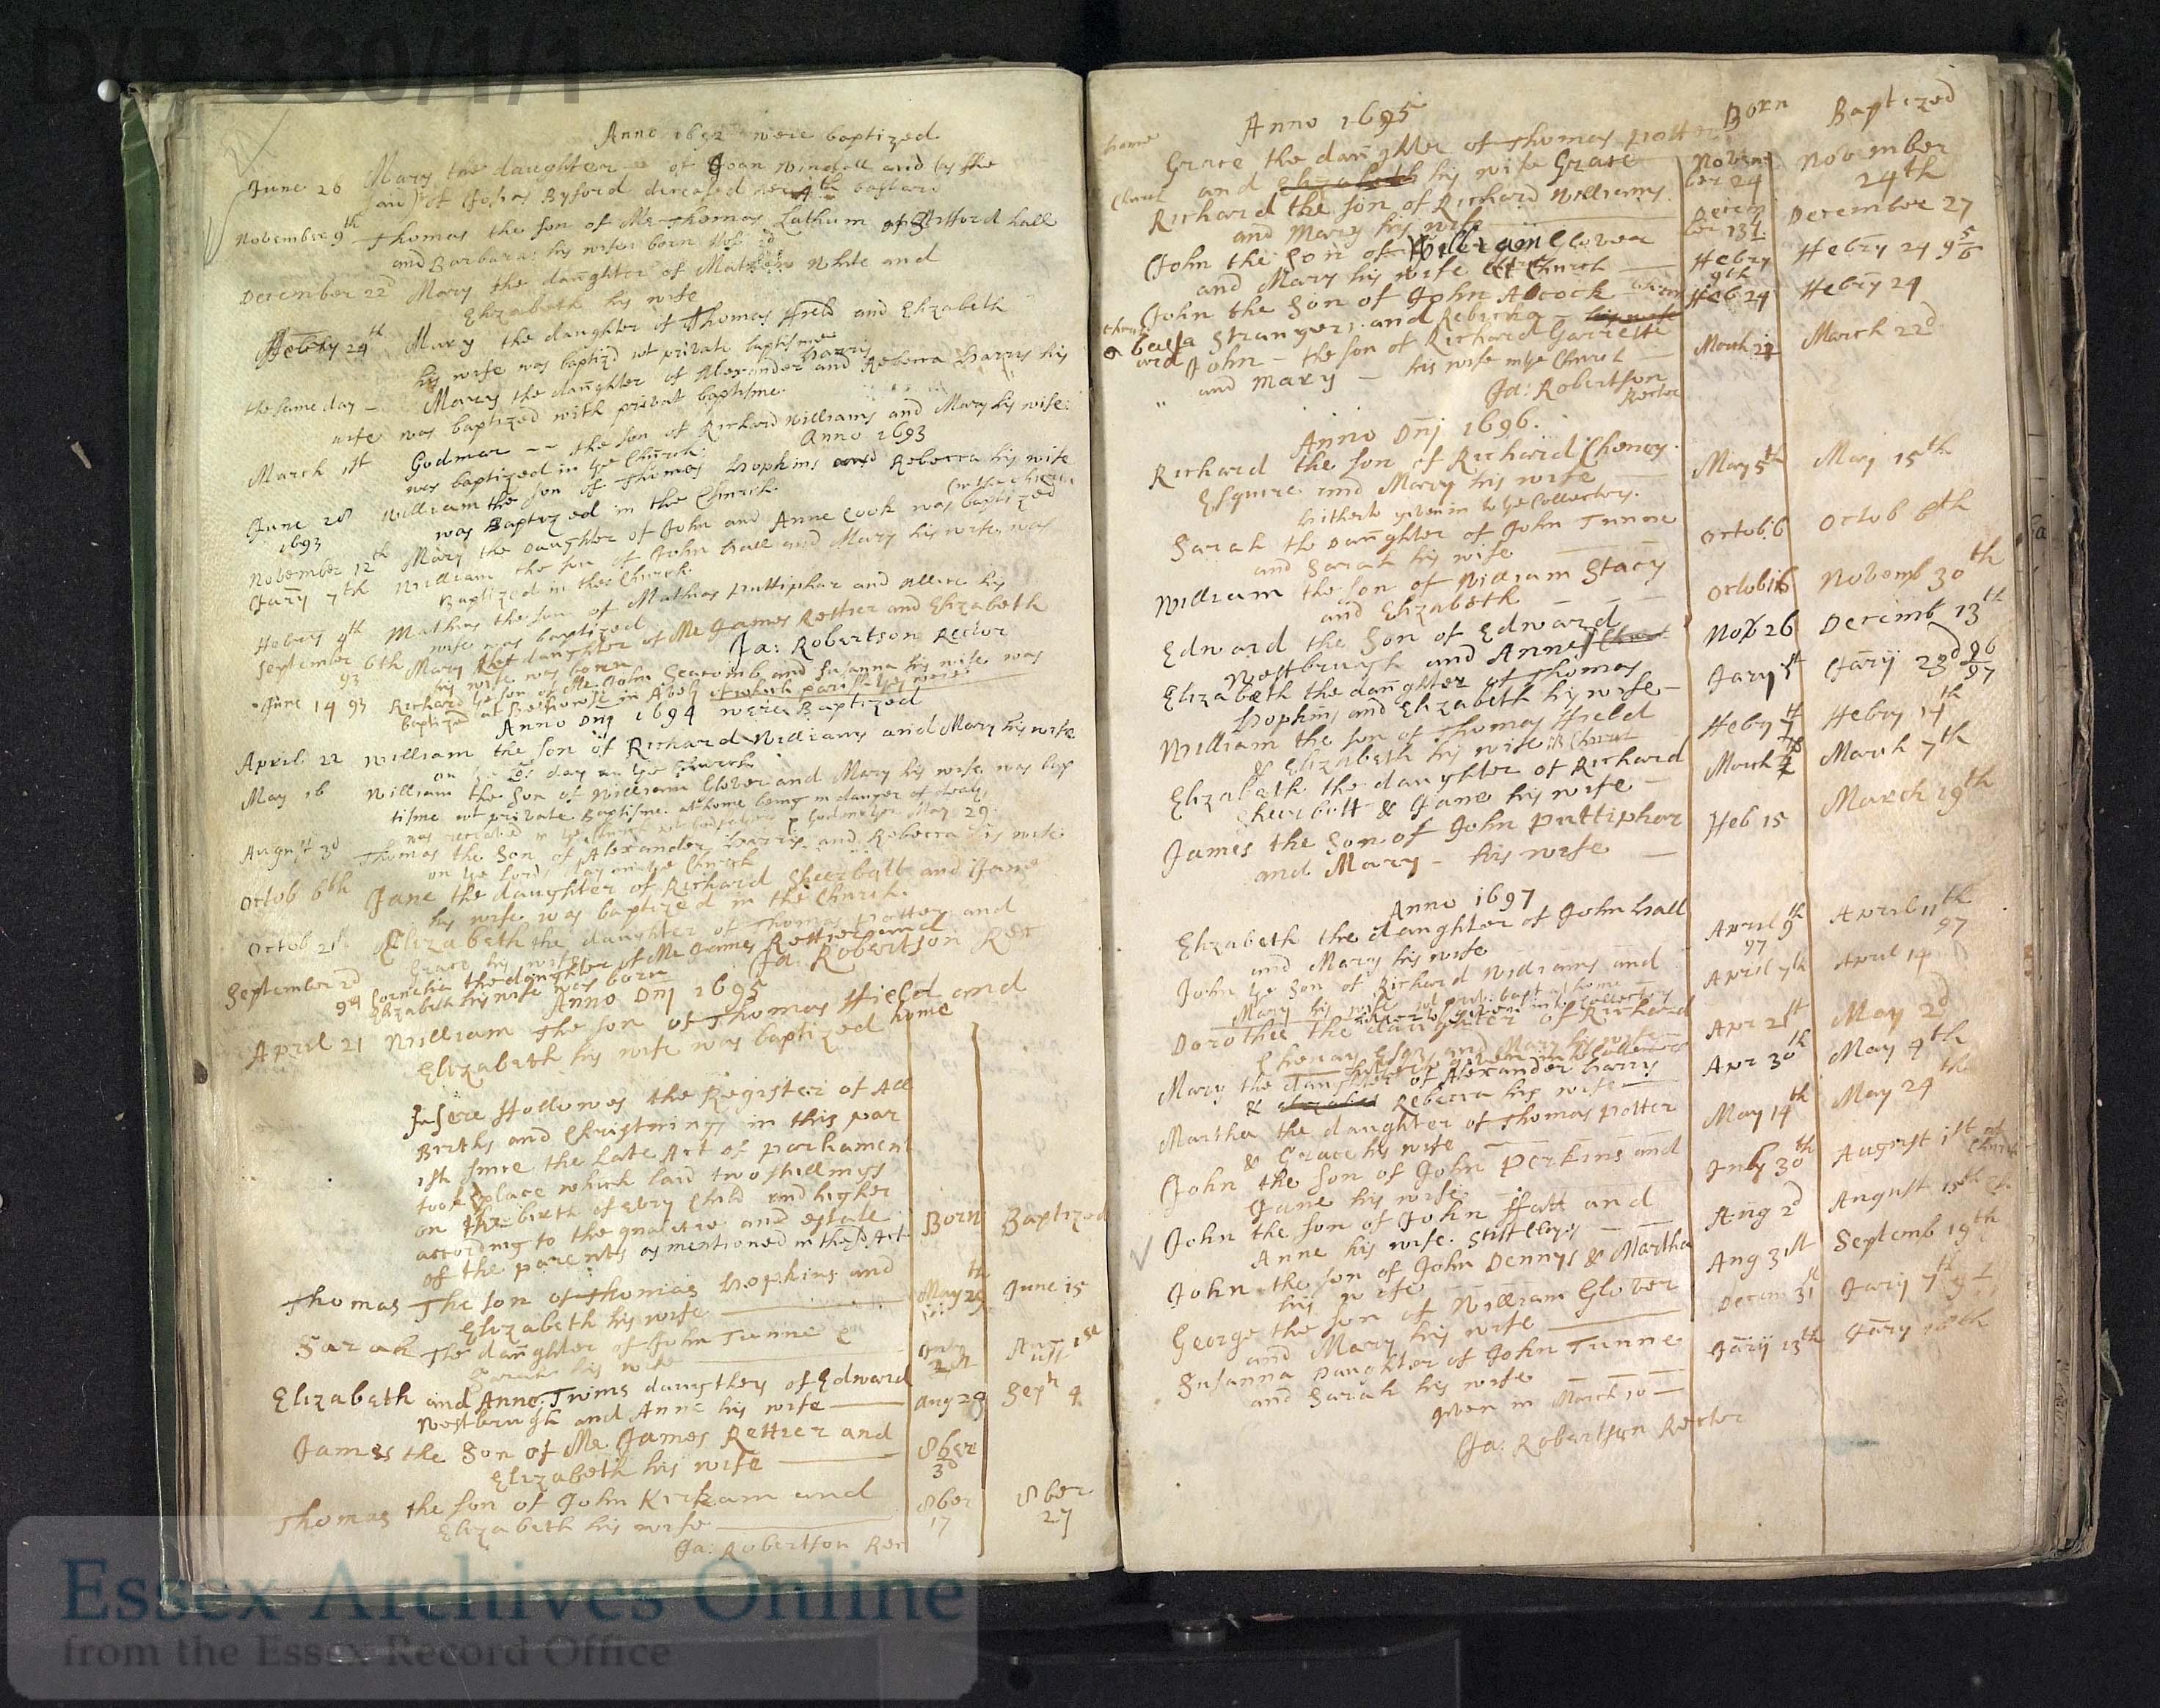 D/P 330/1/1
Anno 1692 were baptized
June 26 Mary the daughter of Joan Windell and by the
said of Josias Byford deceased her bastard
November 9th Thomas the son of Mr Thomas Latham of Stifford hall
and Barbara his wife born Nov 2d
December 22d Mary the daughter of Mathew White and
Elizabeth his wife
Febry 24th Mary the daughter of Thomas Field and Elizabeth
his wife was baptizd wt private baptisme
the same day Mary the daughter of Alexander Harris and Rebecca Harrys his
wife was baptized with privat baptisme.
March 1st Godmar the son of Richard Williams and Mary his wife
was baptized in ye Church.
Anno 1693
June 28 William the son of Thomas Hopkins and Rebecca his wife
1693 was Baptized in the Church.
November 12th Mary the daughter of John and Anne Cook was baptized
in the Church
Jary 7th William the son of John Hall and Mary his wife was
Baptized in the Church.
Febry 4th Mathias the son of Mathias Puttiphar and Allice his
wife was baptized
September 6th Mary the daughter of Mr James Rettier and Elizabeth
93 his wife was born
Ja: Robertson Rector
June 14 93 Richard ye son of Mr John Seacomb and Susanna his wife was
baptized at in Avely of which parish they were
Anno Dnj 1694 were Baptized
April 22 William the son of Richard Williams and Mary his wife
on day in ye Church
May 16 William the Son of William Glover and Mary his wife was bap
tisme wt private Baptisme at home being in danger of death,
was received in ye Church wt Godfathers & Godmother May 29.
August 3d Thomas the Son of Alexander Harris and Rebecca his wife
on ye Lords day in ye Church
Octob 6th Jane the daughter of Richard Sheerbutt and Jane
his wife was baptized in the Church.
Octob 21st Elizabeth the daughter of Thomas Potter and
Grace his wife
September 2d Cornelia the daughter of Mr James Rettier and
94 Elizabeth his wife was born
Ja: Robertson Rec
Anno Dnj 1695
April 21 William the son of Thomas Field and
Elizabeth his wife was baptized home
Here Followes the Register of All
Births and Christnings in this par
ish since the Late Act of parliament
took place which laid two shillings
on the birth of evry Child and higher
according to the qualitie and estate
of the parents as mentioned in the sd Act
Born Baptized
Thomas The son of Thomas Hopkins and May 29th June 15
Elizabeth his wife
Sarah The daughter of John Tunne &
Sarah his wife
Elizabeth and Anne Twins daughters of Edward Aug 29 Sept 4
Westbrugh and Anne his wife
James the Son of Mr James Rettier and 8ber
Elizabeth his wife 3d
Thomas the son of John Kirkam and 8ber 8ber
Elizabeth his wife 17 27
Ja: Robertson Rec
Anno 1695 Born Baptized
home Grace the daughter of Thomas Potter Novem November
Church and Elizabeth his wife Grace ber 24 24th
Richard the son of Richard Williams Decem December 27
and Mary his wife ber 13th
John the Son of William Glover Febry Febry 24 95/6
and Mary his wife Church 9th
John the Son of John Alcock Feb 24 Febry 24
Church Strangers and Rebecka his wife
a bast
ard John the son of Richard Garrette March 21 March 22d
and Mary his wife in ye Church
Ja: Robertson
Rector
Anno Dnj 1696.
Richard the son of Richard Cheney May 5th May 15th
Esquire and Mary his wife
hitherto given in to ye Collectors.
Sarah the Daughter of John Tunne Octob 6 Octob 6th
and Sarah his wife
William the son of William Stacy Octob 16 Novemb 30th
and Elizabeth
Edward the Son of Edward Nov 26 Decemb 13th
Westbrugh and Anne Church
Elizabeth the daughter of Thomas Jary 1st Jary 23d 96/97
Hopkins and Elizabeth his wife
William the son of Thomas Field Febry Febry 14th
& Elizabeth his wife Church
Elizabeth the daughter of Richard March March 7th
Sheerbutt & Jane his wife
James the Son of John Puttiphar Feb 15 March 19th
and Mary his wife
Anno 1697
Elizabeth the daughter of John Hall April 9th April 11th
and Mary his wife 97 97
John ye Son of Richard Williams and April 7th April 14
Mary his wife wt priv. bapt at home
hitherto given in to Collectors
Dorothee the daughter of Richard Apr 21st May 2d
Cheney Esqr and Mary his wife
Mary the daughter of Alexander Harry Apr 30th May 4th
& Rebecca his wife
Martha the daughter of Thomas Potter May 14th May 24th
& Grace his wife
John the Son of John Perkins and July 30th August 1st at
Jane his wife Church
John the son of John Hatt and Aug 2d August 15th Ch
Anne his wife. Stifteloyes
John the son of John Dennys & Martha Aug 31st Septemb 19th
his wife
George the son of William Glover Decem 31st Jary 7th
and Mary his wife
Susanna Daughter of John Tunne Jary 13th Jary
and Sarah his wife
given in March 10
Ja: Robertson Rector
Essex Archives Online
from the Essex Record Office